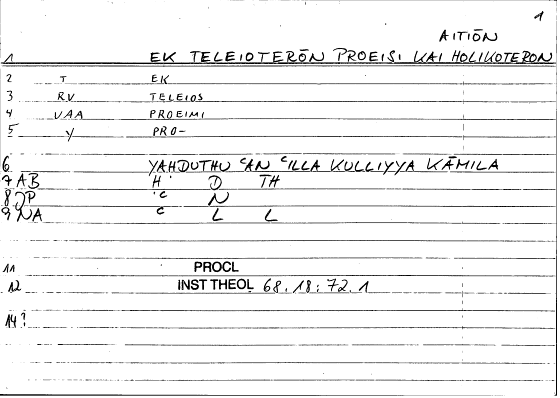 1
AITIŌN
1 EK TELEIOTERŌN PROEISI KAI HOLIKOTERON
2 T EK
3 RV TELEIOS
4 VAA PROEIMI
5 Y PRO-
6 YAHDUTHU ʿAN ʿILLA KULLIYYA KĀMILA
7 AB Ḥ D TH
8 JP ʿ N
9 NA ʿ L L
11 PROCL
12 INST THEOL 68.18:72.1
14